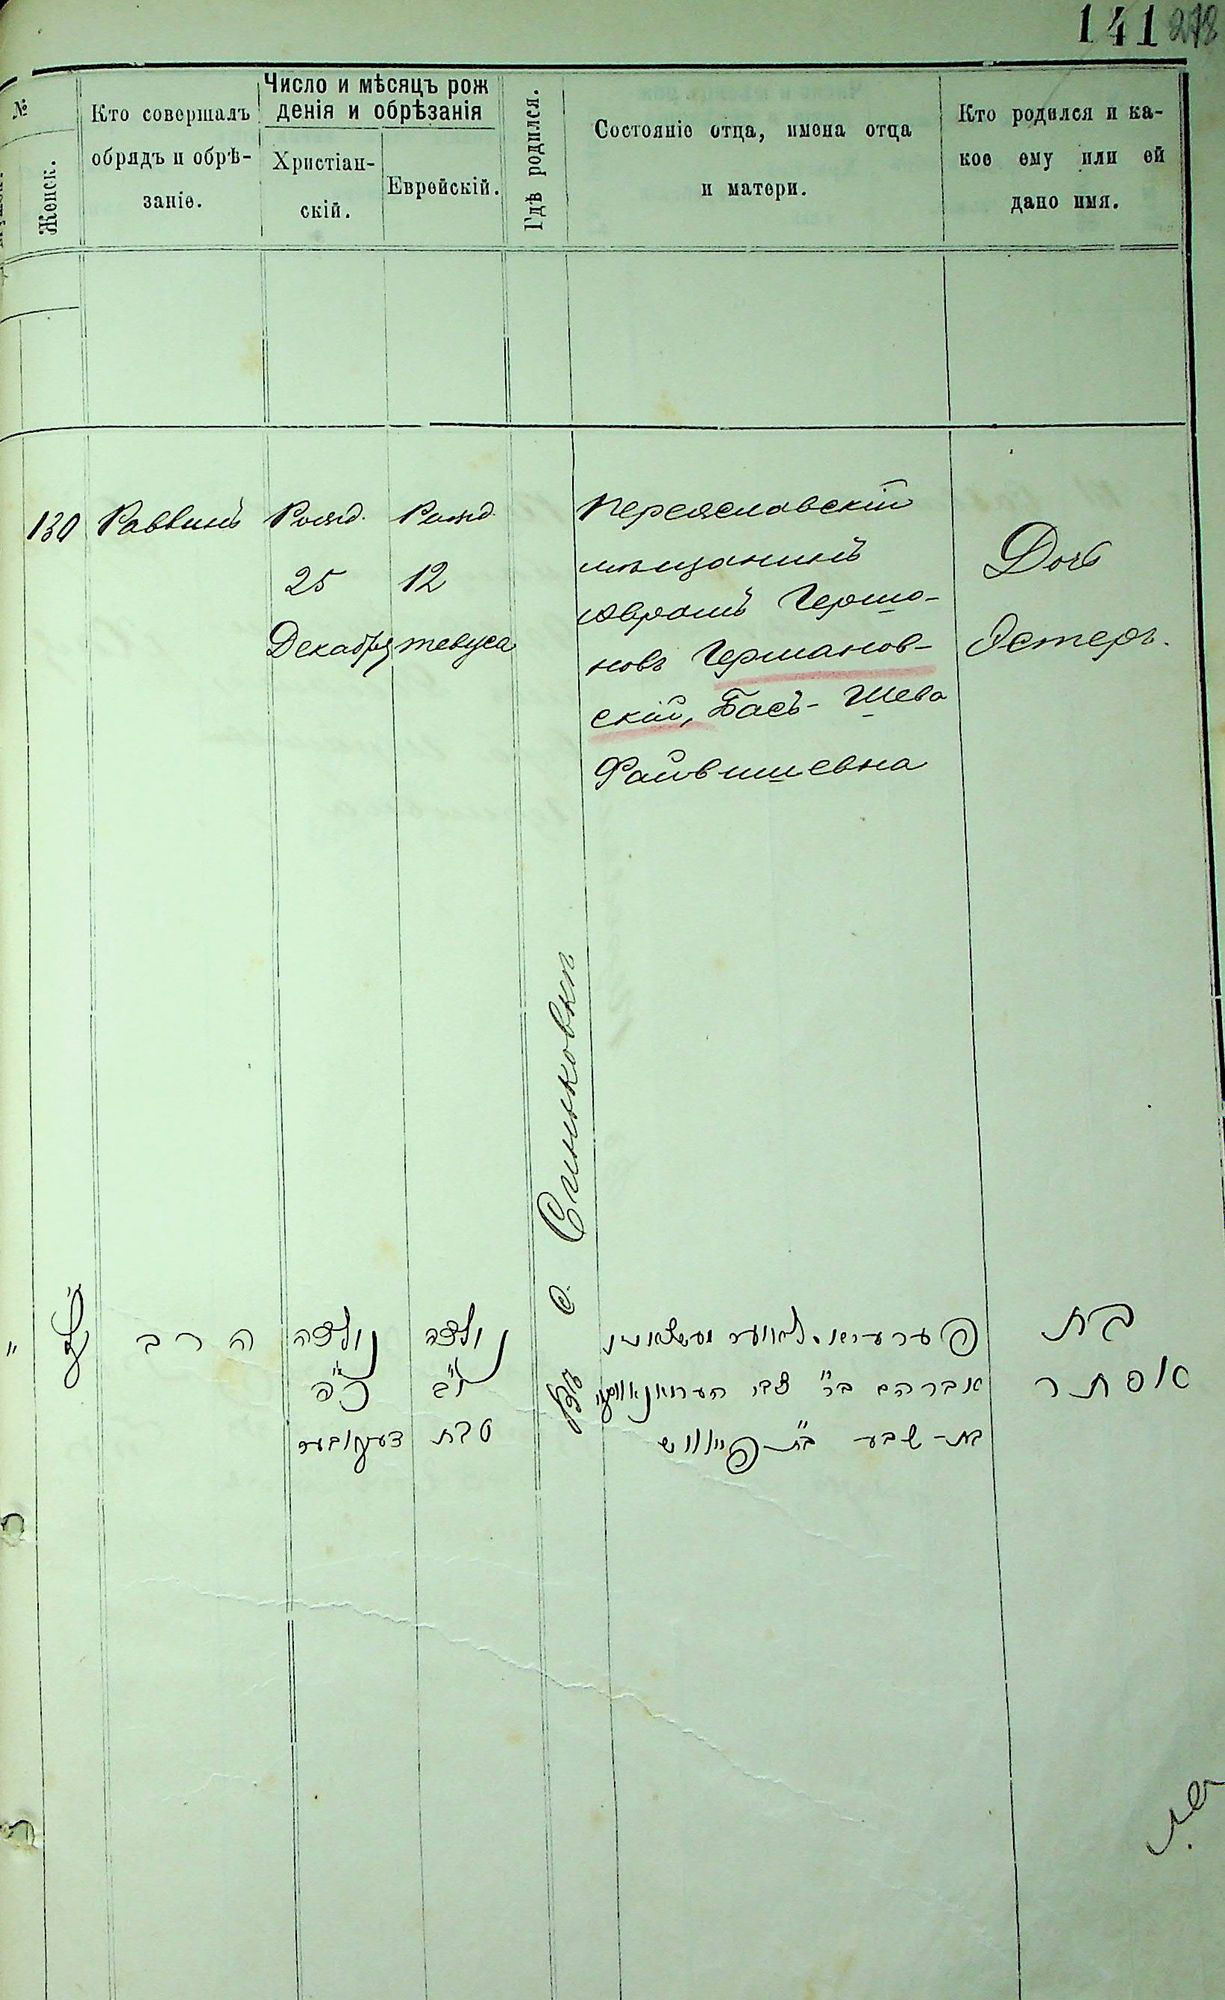 141 278
№
Женск.
Кто совершалъ
обрядъ и обрѣ-
заніе.
Число и мѣсяцъ рож
денія и обрѣзанія
Христіан-
скій.
Еврейскій.
Гдѣ родился.
Состояніе отца, имена отца
и матери.
Кто родился и ка-
кое ему или ей
дано имя.
130
Раввинъ
Рожд.
25
Декабря
Рожд
12
тевуса
Въ с. Синьковкѣ
Переяславскій
мѣщанинъ
Аврамъ Гершо-
новъ Германов-
скій, Басъ-Шева
Файвишевна
Дочь
Эстеръ.
"
ק״ל
הרב
נולדה
כ״ה
דעקאבער
נולדה
י״ב
טבת
אברהם בר׳
בת-שבע בת פייוויש
בת
אסתר